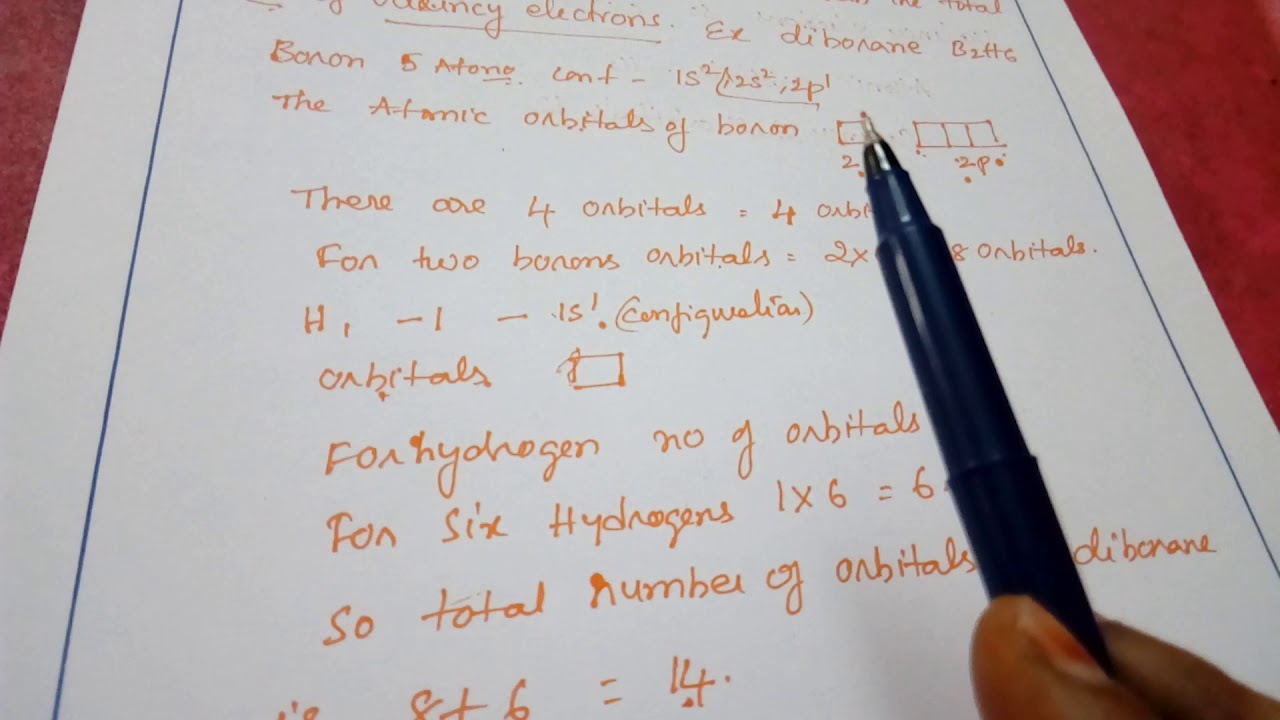 electrons. Ex diborane B2H6
Boron 5 Atomo. conf - 1s2, 2s2, 2p1
The Atomic orbitals of boron
2 2p
There are 4 orbitals = 4
For two borons orbitals = 2x 8 orbitals.
H, -1 - 1s1. (configuration)
orbitals
For hydrogen no of orbitals
For Six Hydrogens 1x6 = 6
So total number of orbitals diborane
is 8+6 = 14.